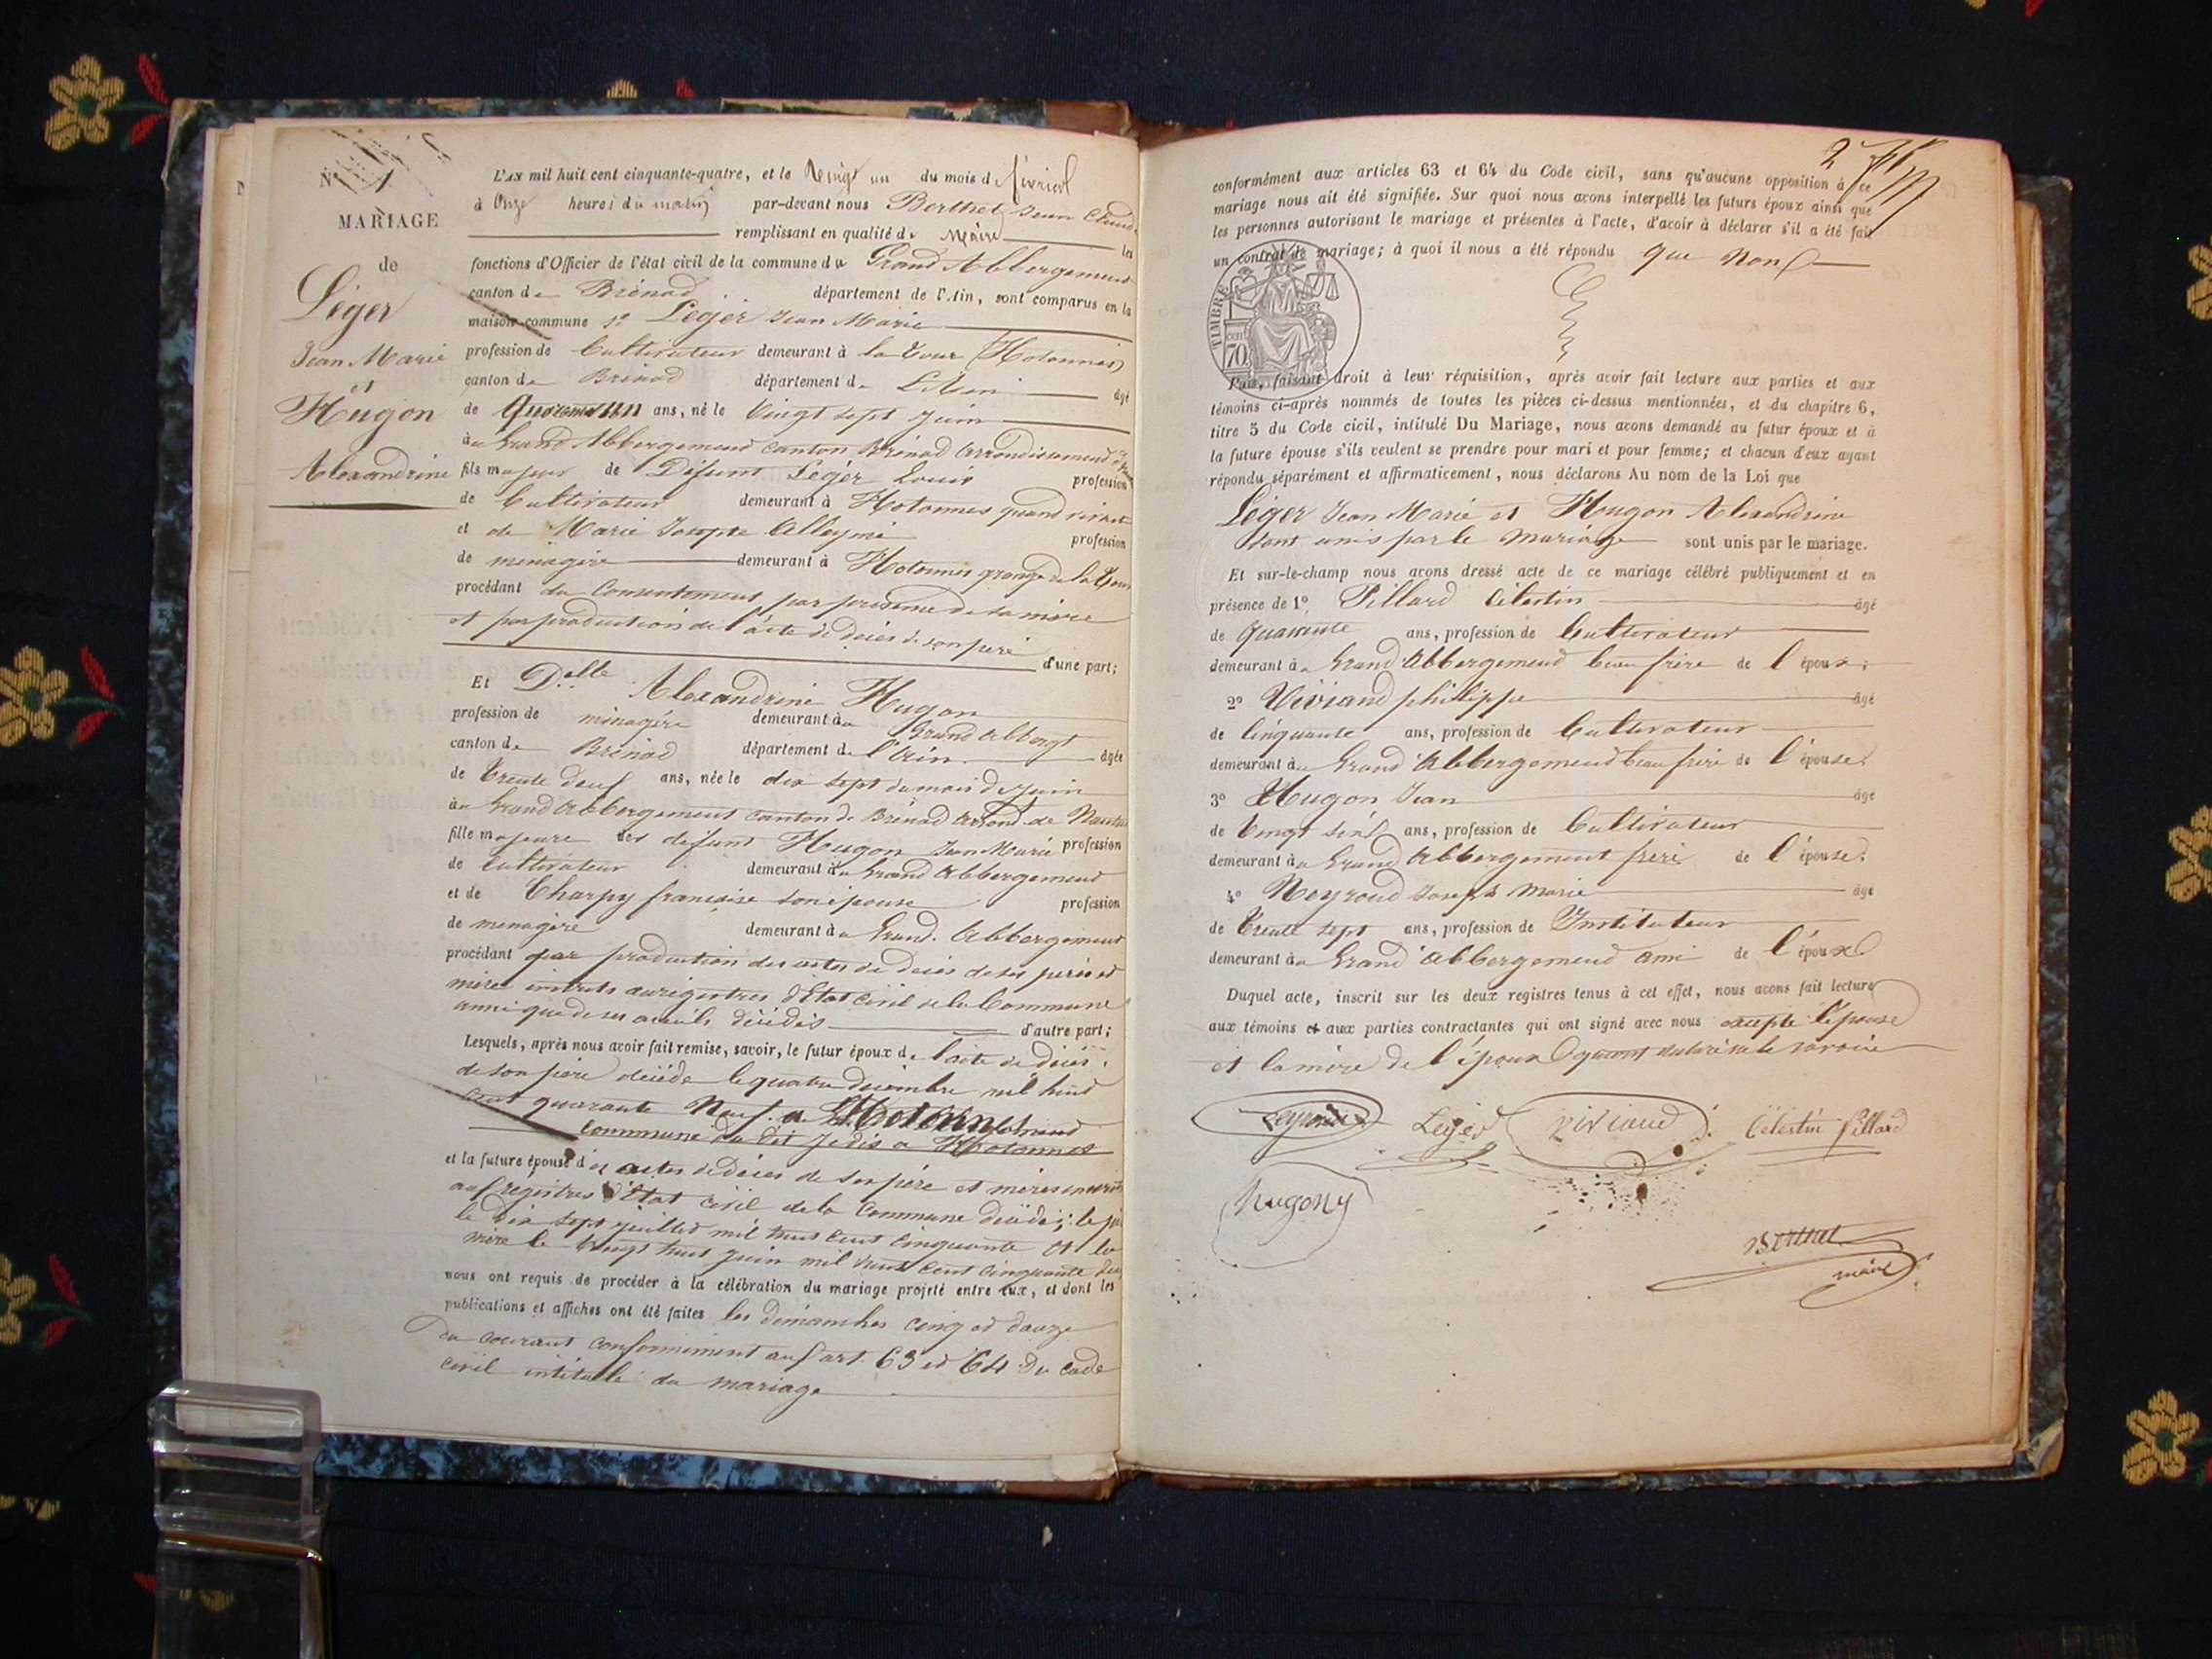 N° 1
MARIAGE
de
Léger
Jean Marie
et
Hugon
Alexandrine
L'AN mil huit cent cinquante-quatre, et le vingt un du mois d. février
à onze heures du matin par-devant nous Berthet Jean Claude
remplissant en qualité de Maire les
fonctions d'Officier de l'état civil de la commune du Grand Abbergement
canton de Brénod département de l'Ain, sont comparus en la
maison commune 1° Léger Jean Marie
profession de Cultivateur demeurant à la Cour (Hotonnes)
canton de Brénod département de L'Ain âgé
de Quarante un ans, né le vingt sept juin
au Grand Abbergement canton Brénod arrondissement
fils majeur de Défunt Léger Louis profession
de Cultivateur demeurant à Hotonnes quand vivait
et de Marie Josephte profession
de ménagère demeurant à Hotonnes grange de la Cour
procédant du Consentement par présence de sa mère
et par production de l'acte de décès de son père
d'une part;
Et D.elle Alexandrine Hugon
profession de ménagère demeurant au Grand Abbergt
canton de Brénod département de l'Ain âgée
de Trente deux ans, née le dix sept du mois de juin
au Grand Abbergement canton de Brénod arrond. de Nantua
fille majeure des défunt Hugon Jean Marie profession
de cultivateur demeurant au Grand Abbergement
et de Charpy françoise son épouse profession
de menagère demeurant au Grand. Abbergement
procédant par production des actes de décès de ses père et
mère inscrits aux registres d'Etat civil de la Commune
ainsi que de ses aieuls décédés d'autre part;
Lesquels, après nous avoir fait remise, savoir, le futur époux de l'acte de décès
de son père décédé le quatre décembre mil huit
cent quarante Neuf. a
commune du dit je dis a Hotonnes
et la future épouse des actes de décès de ses père et mères inscrits
aux registres d'Etat civil de la Commune décédés; le père
le Dix sept juillet mil huit cent cinquante et la
mère le vingt huit juin mil huit cent cinquante deux
nous ont requis de procéder à la célébration du mariage projeté entre eux, et dont les
publications et affiches ont été faites les dimanches cinq et douze
du courant conformément aux art. 63 et 64 du code
civil intitulé du mariage
2
conformément aux articles 63 et 64 du Code civil, sans qu'aucune opposition à ce
mariage nous ait été signifiée. Sur quoi nous avons interpellé les futurs époux ainsi que
les personnes autorisant le mariage et présentes à l'acte, d'avoir à déclarer s'il a été fait
un contrat de mariage; à quoi il nous a été répondu que non
TIMBRE
70
Puis, faisant droit à leur réquisition, après avoir fait lecture aux parties et aux
témoins ci-après nommés de toutes les pièces ci-dessus mentionnées, et du chapitre 6,
titre 5 du Code civil, intitulé Du Mariage, nous avons demandé au futur époux et à
la future épouse s'ils veulent se prendre pour mari et pour femme; et chacun d'eux ayant
répondu séparément et affirmativement, nous déclarons Au nom de la Loi que
Léger Jean Marie et Hugon Alexandrine
sont unis par le mariage sont unis par le mariage.
Et sur-le-champ nous avons dressé acte de ce mariage célébré publiquement et en
présence de 1° Pillard Célestin âgé
de quarante ans, profession de Cultivateur
demeurant au Grand Abbergement beau frère de l'époux;
2° Viviand philippe âgé
de cinquante ans, profession de Cultivateur
demeurant au Grand Abbergement beau frère de l'épouse;
3° Hugon Jean âgé
de vingt six ans, profession de Cultivateur
demeurant au Grand Abbergement frère de l'épouse;
4° Neyroud Joseph Marie âgé
de trente sept ans, profession de Instituteur
demeurant au Grand Abbergement ami de l'époux
Duquel acte, inscrit sur les deux registres tenus à cet effet, nous avons fait lecture
aux témoins et aux parties contractantes qui ont signé avec nous excepté l'épouse
et la mère de l'époux ayant déclaré ne le savoir
Neyroud Léger viviand Célestin Pillard
hugon
Berthet
maire